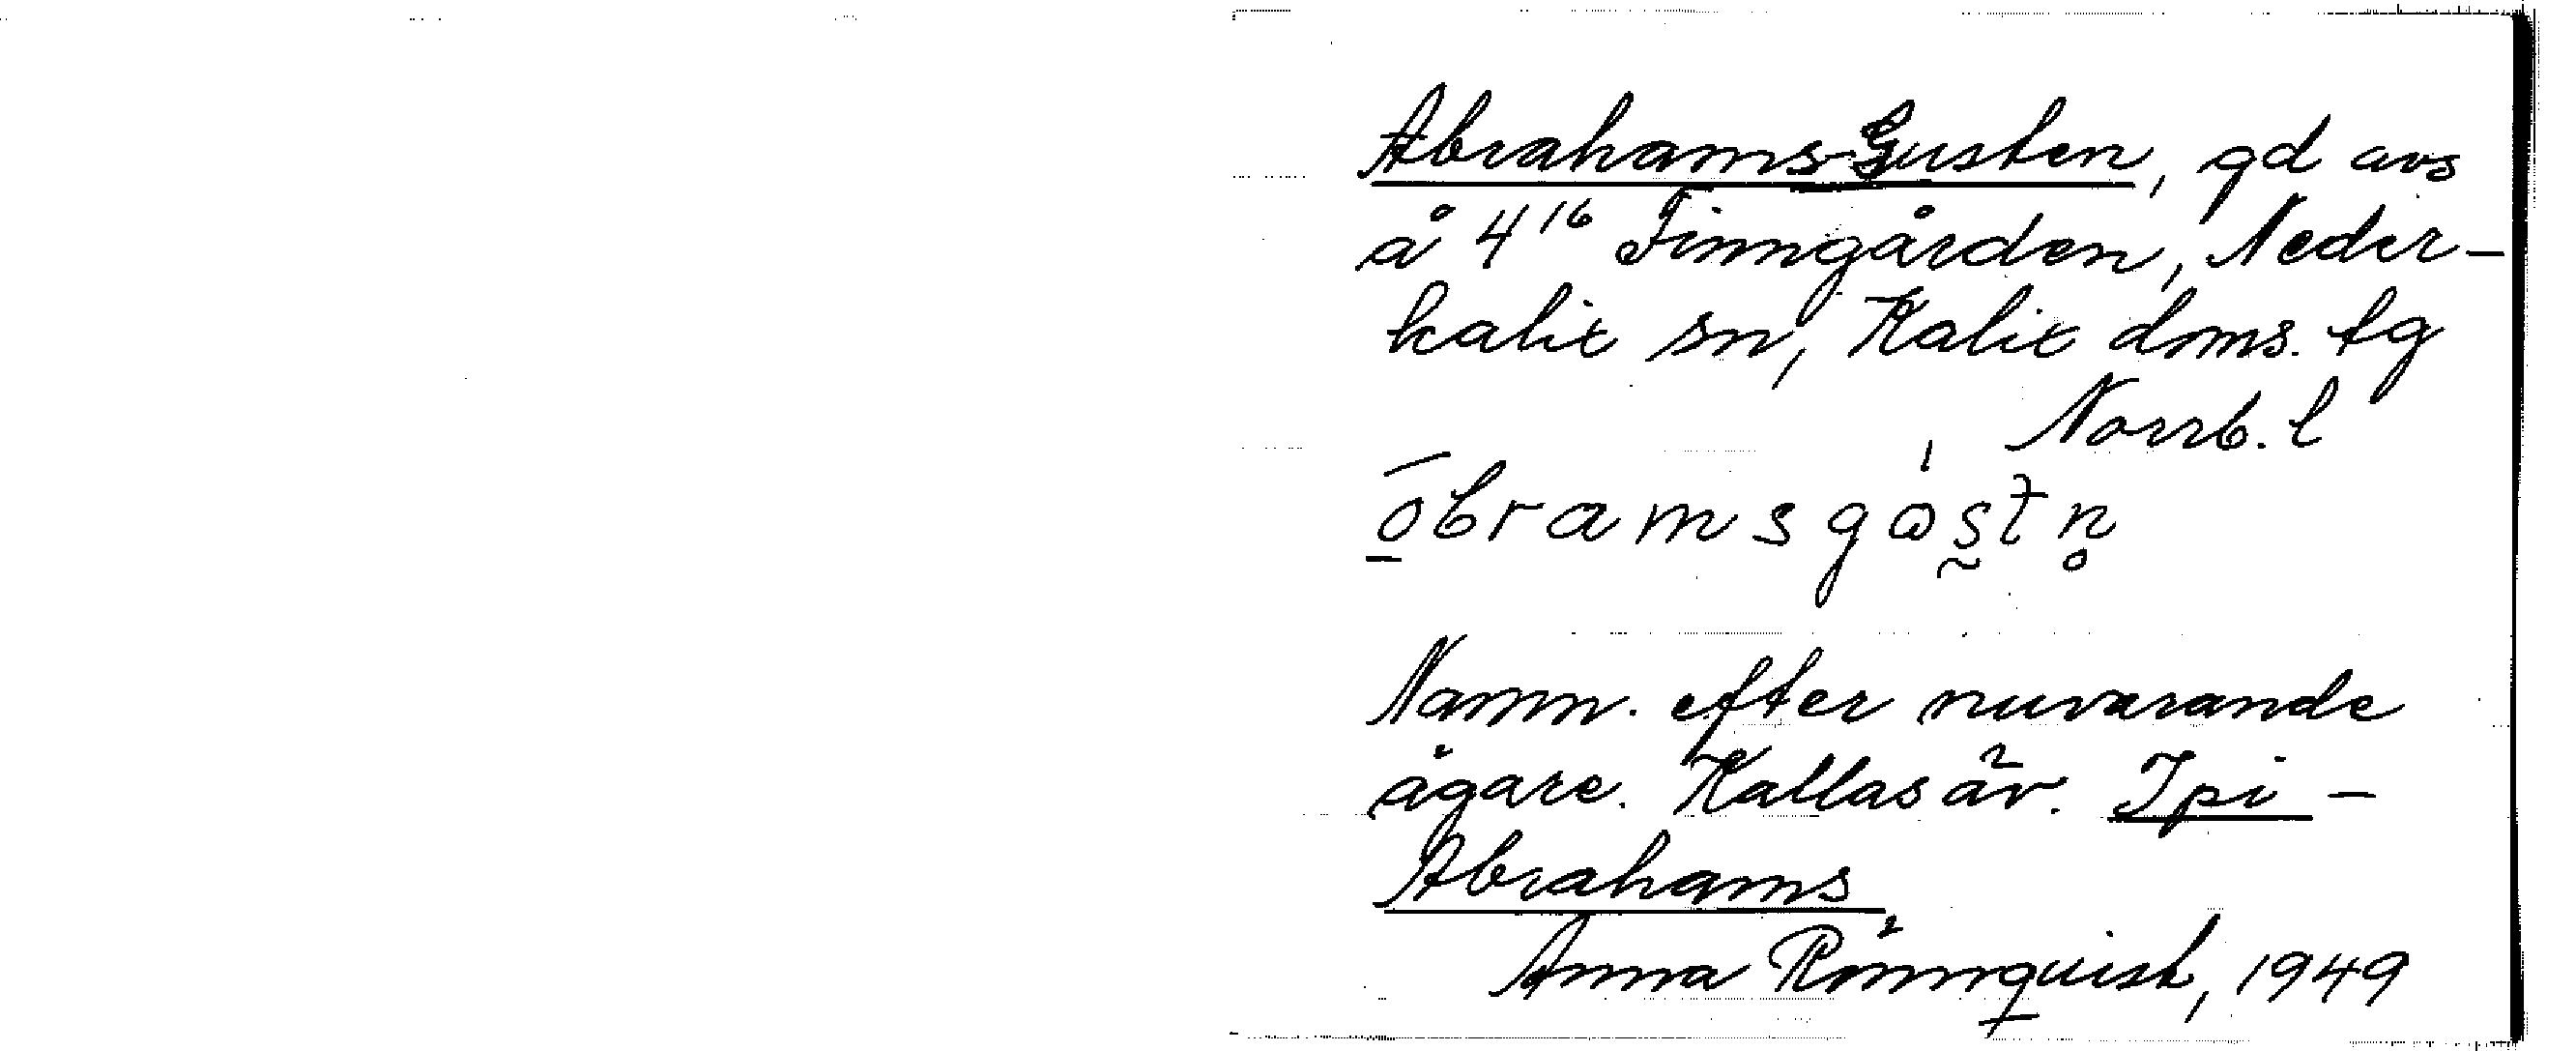 Abrahams-Gusten, gd avs
å 4¹⁶ Finngården, Neder-
kalix sn, Kalix doms. tg
Norrb. l
Namn. efter nuvarande
ägare. Kallas äv. Ipi-
Abrahams
Anna Rönnquist, 1949